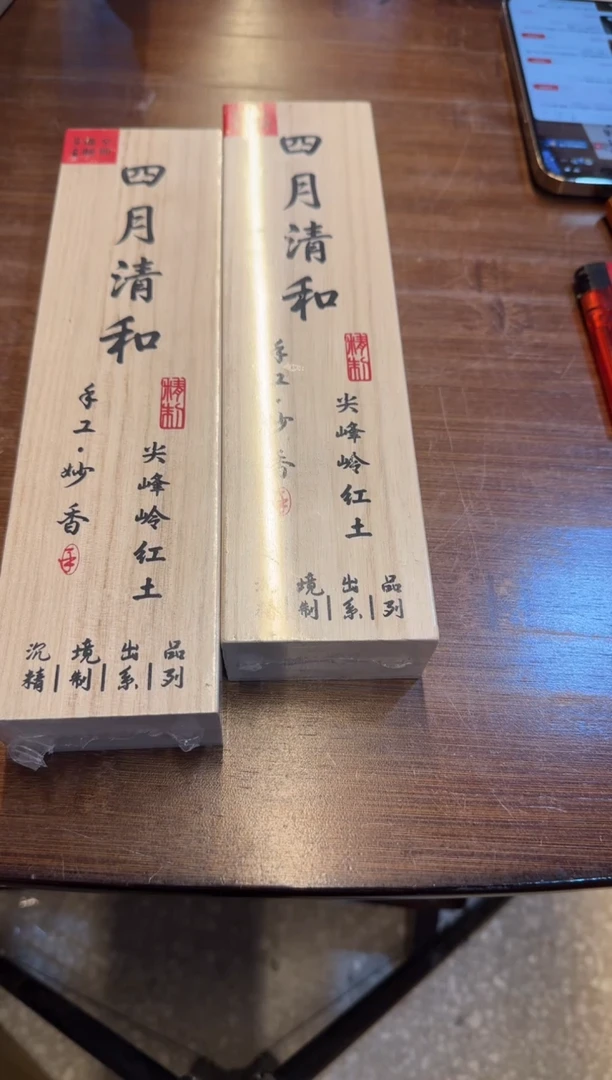 四月清和
精制
尖峰岭红土
手工·妙香
沉境出品
精制系列
四月清和
精制
尖峰岭红土
手工·妙香
境出品
制系列